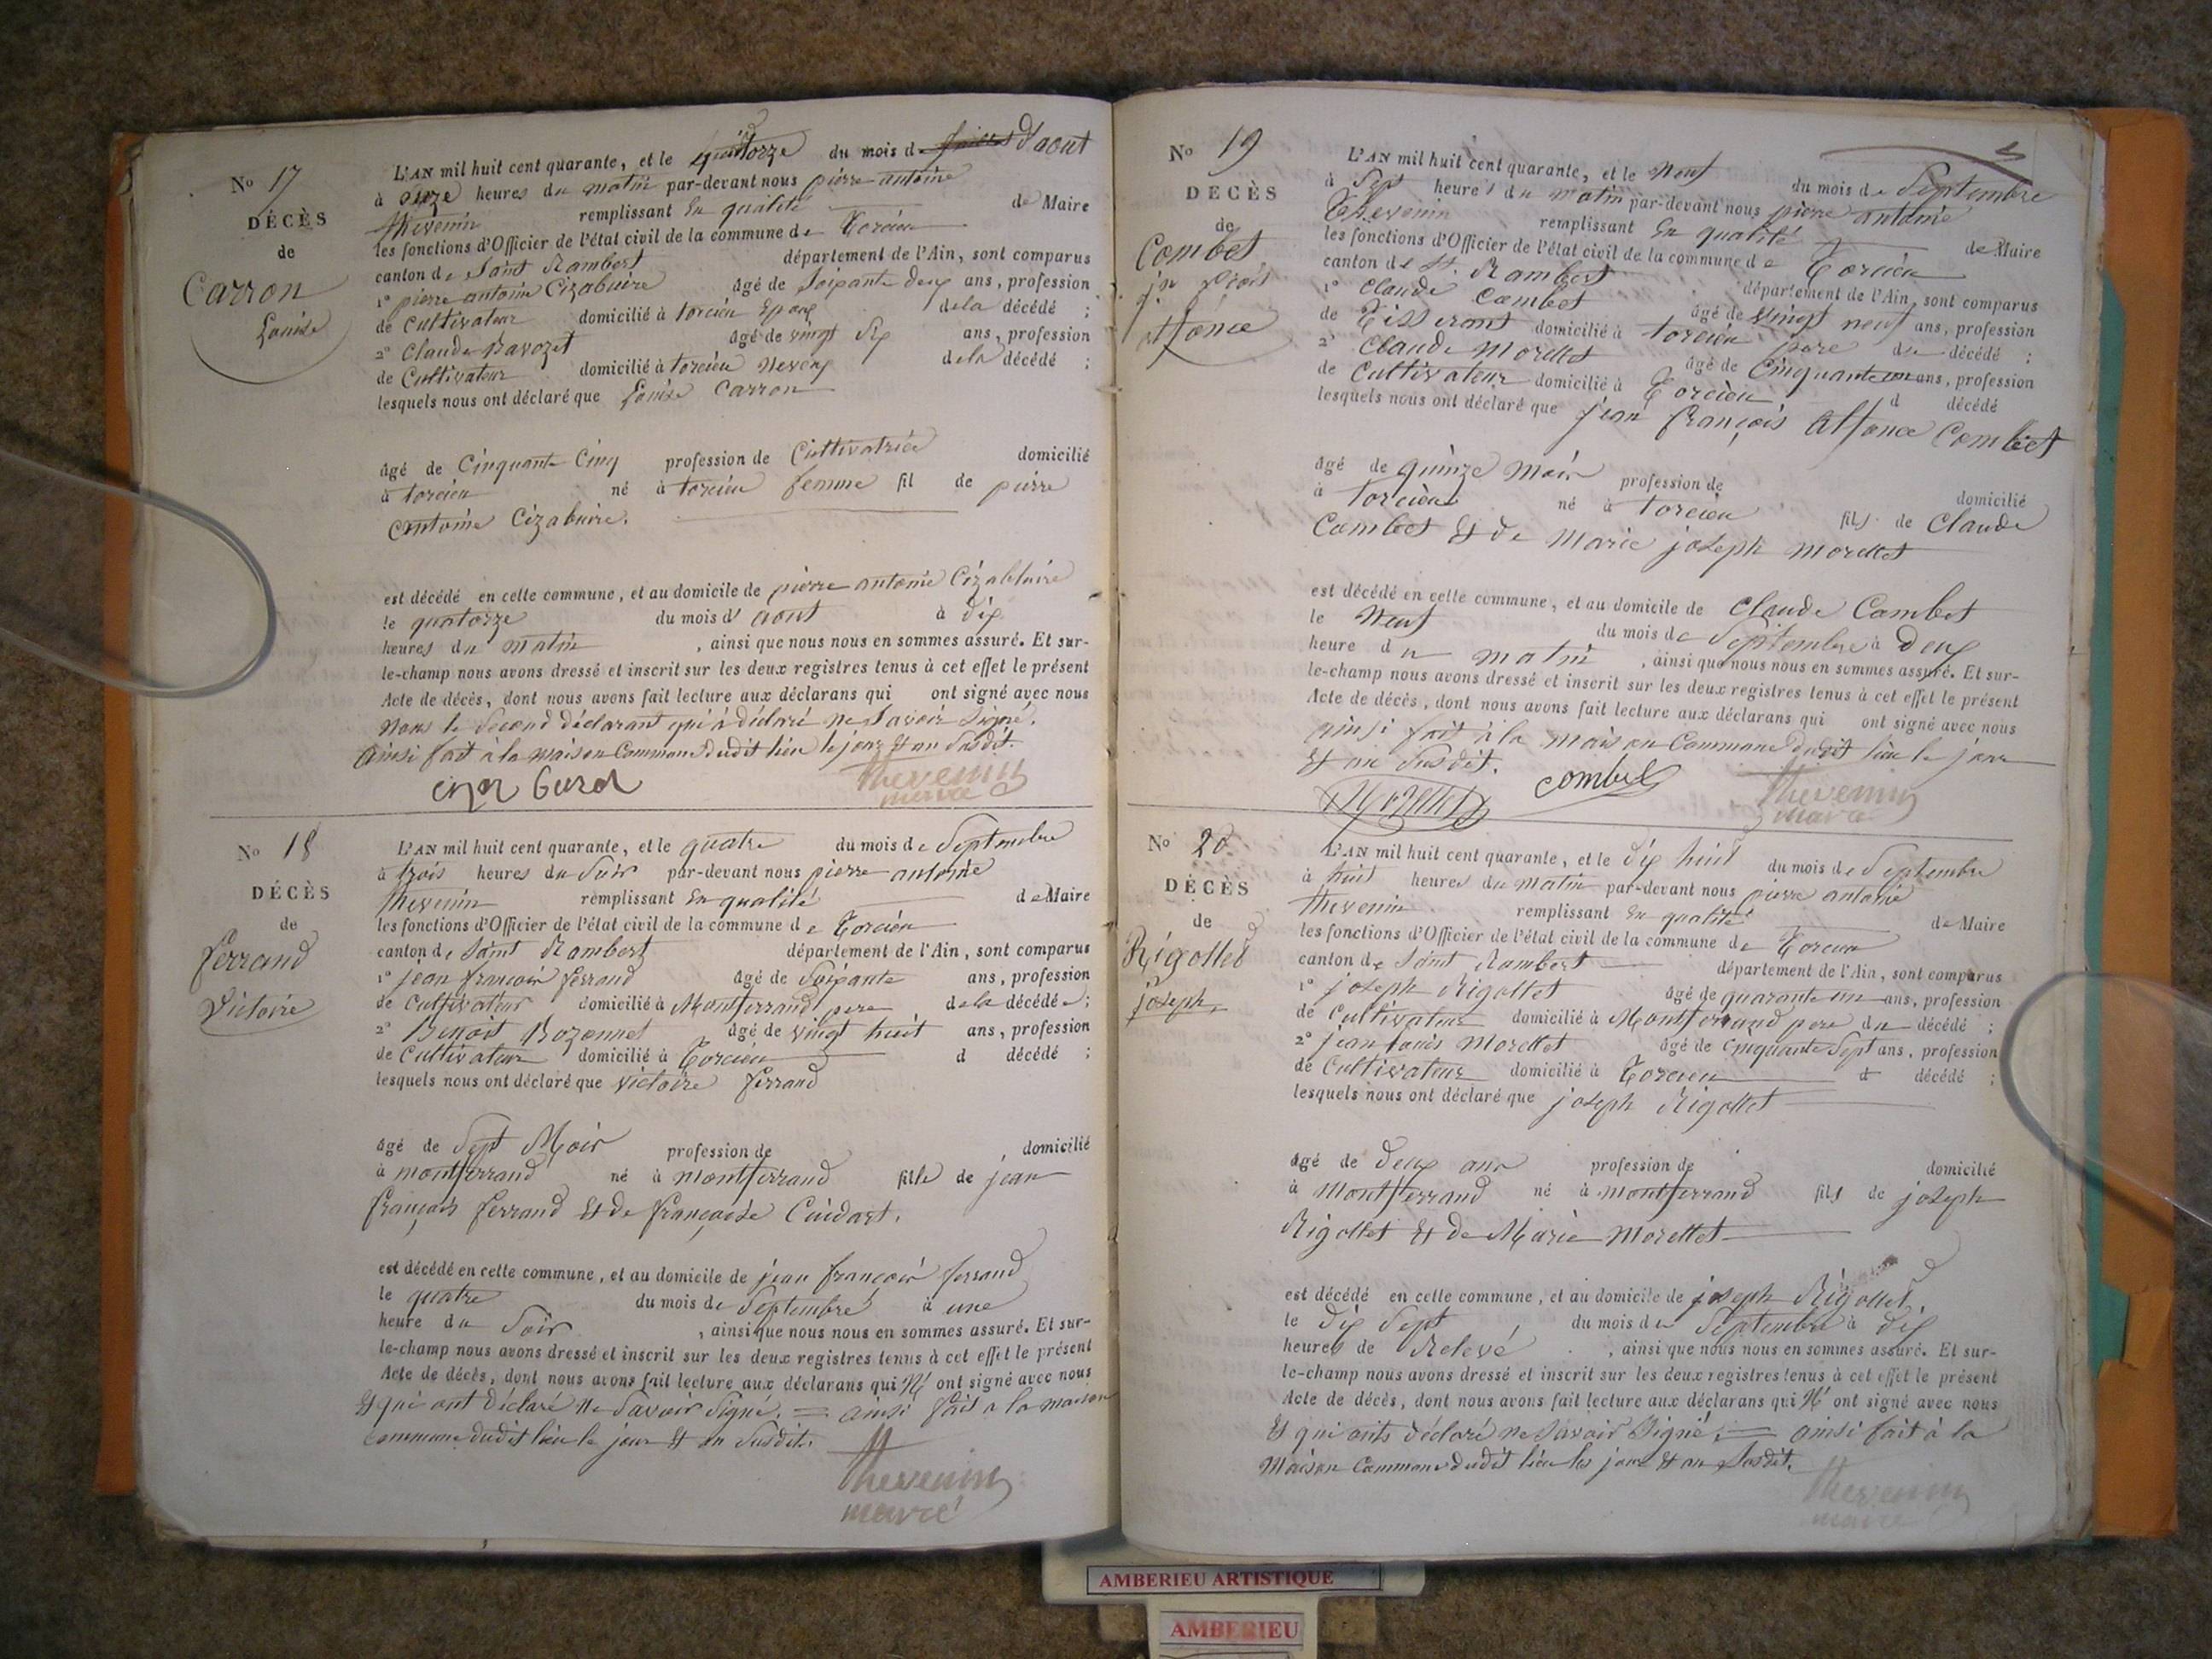 No 17
DÉCÈS
de
Carron
Louise
L'AN mil huit cent quarante, et le quatorze du mois d'aout
à onze heures du matin par-devant nous pierre antoine
thevenin remplissant En qualité de Maire
les fonctions d'Officier de l'état civil de la commune de Torcieu
canton de Saint Rambert département de l'Ain, sont comparus
1° pierre antoine Cizabuire âgé de Soixante deux ans, profession
de Cultivateur domicilié à torcieu Epoux de la décédé ;
2° Claude Ravozet âgé de vingt Six ans, profession
de Cultivateur domicilié à torcieu Neveux de la décédé ;
lesquels nous ont déclaré que Louise Carron
âgé de Cinquante Cinq profession de Cultivatrice domicilié
à torcieu né à torcieu femme fil de pierre
antoine Cizabuire.
est décédé en cette commune, et au domicile de pierre antoine Cizabuire
le quatorze du mois d'aout à dix
heures du matin, ainsi que nous nous en sommes assuré. Et sur-
le-champ nous avons dressé et inscrit sur les deux registres tenus à cet effet le présent
Acte de décès, dont nous avons fait lecture aux déclarans qui ont signé avec nous
Nons le Second déclarant qui à déclaré ne Savoir Signé.
Ainsi fait à la maison Commune dudit lieu le jour Et an Susdit.
thevenin
maire
No 18
DÉCÈS
de
Ferrand
Victoire
L'AN mil huit cent quarante, et le quatre du mois de Septembre
à trois heures du Soir par-devant nous pierre antoine
thevenin remplissant En qualité de Maire
les fonctions d'Officier de l'état civil de la commune de Torcieu
canton de Saint Rambert département de l'Ain, sont comparus
1° jean françois ferrand âgé de Soixante ans, profession
de Cultivateur domicilié à Montferrand pere de la décédée ;
2° Benoit Bozonnet âgé de vingt huit ans, profession
de Cultivateur domicilié à Torcieu d décédé ;
lesquels nous ont déclaré que victoire ferrand
âgé de Sept Mois profession de domicilié
à montferrand né à montferrand fille de jean
françois ferrand Et de françoise Cuidart.
est décédé en cette commune, et au domicile de jean françois ferrand
le quatre du mois de Septembre à une
heure du Soir, ainsi que nous nous en sommes assuré. Et sur-
le-champ nous avons dressé et inscrit sur les deux registres tenus à cet effet le présent
Acte de décès, dont nous avons fait lecture aux déclarans qui N' ont signé avec nous
Et qui ont déclaré ne Savoir Signé. = ainsi fait a la maison
Commune dudit lieu le jour Et an Susdit.
thevenin
maire
No 19
DÉCÈS
de
Combet
jn frois
alfonce
L'AN mil huit cent quarante, et le Neuf du mois de Septembre
à Sept heures du matin par-devant nous pierre antoine
Thevenin remplissant En qualité de Maire
les fonctions d'Officier de l'état civil de la commune de Torcieu
canton de St. Rambert département de l'Ain, sont comparus
1° Claude Combet âgé de vingt neuf ans, profession
de Tisserant domicilié à torcieu pere du décédé ;
2° Claude Morellet âgé de Cinquante un ans, profession
de Cultivateur domicilié à Torcieu d décédé
lesquels nous ont déclaré que jean françois Alfonce Combet
âgé de quinze Mois profession de domicilié
à torcieu né à torcieu fils de Claude
Combet Et de Marie joseph Morellet
est décédé en cette commune, et au domicile de Claude Combet
le Neuf du mois de Septembre à Deux
heure du matin, ainsi que nous nous en sommes assuré. Et sur-
le-champ nous avons dressé et inscrit sur les deux registres tenus à cet effet le présent
Acte de décès, dont nous avons fait lecture aux déclarans qui ont signé avec nous
ainsi fait à la maison Commune dudit lieu le jour
Et an Susdit.
Morellet combet thevenin
maire
No 20
DÉCÈS
de
Rigollet
joseph
L'AN mil huit cent quarante, et le dix huit du mois de Septembre
à huit heures du matin par-devant nous pierre antoine
thevenin remplissant En qualité de Maire
les fonctions d'Officier de l'état civil de la commune de Torcieu
canton de Saint Rambert département de l'Ain, sont comparus
1° joseph Rigollet âgé de quarante un ans, profession
de Cultivateur domicilié à Montferrand pere du décédé ;
2° jean louis Morellet âgé de cinquante Sept ans, profession
de Cultivateur domicilié à Torcieu d décédé ;
lesquels nous ont déclaré que joseph Rigollet
âgé de deux ans profession de domicilié
à Montferrand né à montferrand fils de joseph
Rigollet Et de Marie Morellet
est décédé en cette commune, et au domicile de joseph Rigollet
le dix Sept du mois de Septembre à dix
heures de Relevé, ainsi que nous nous en sommes assuré. Et sur-
le-champ nous avons dressé et inscrit sur les deux registres tenus à cet effet le présent
Acte de décès, dont nous avons fait lecture aux déclarans qui N' ont signé avec nous
Et qui onts déclaré ne Savoir Signé. = ainsi fait à la
Maison Commune dudit lieu les jour Et an Susdit.
thevenin
maire
AMBERIEU ARTISTIQUE
AMBERIEU